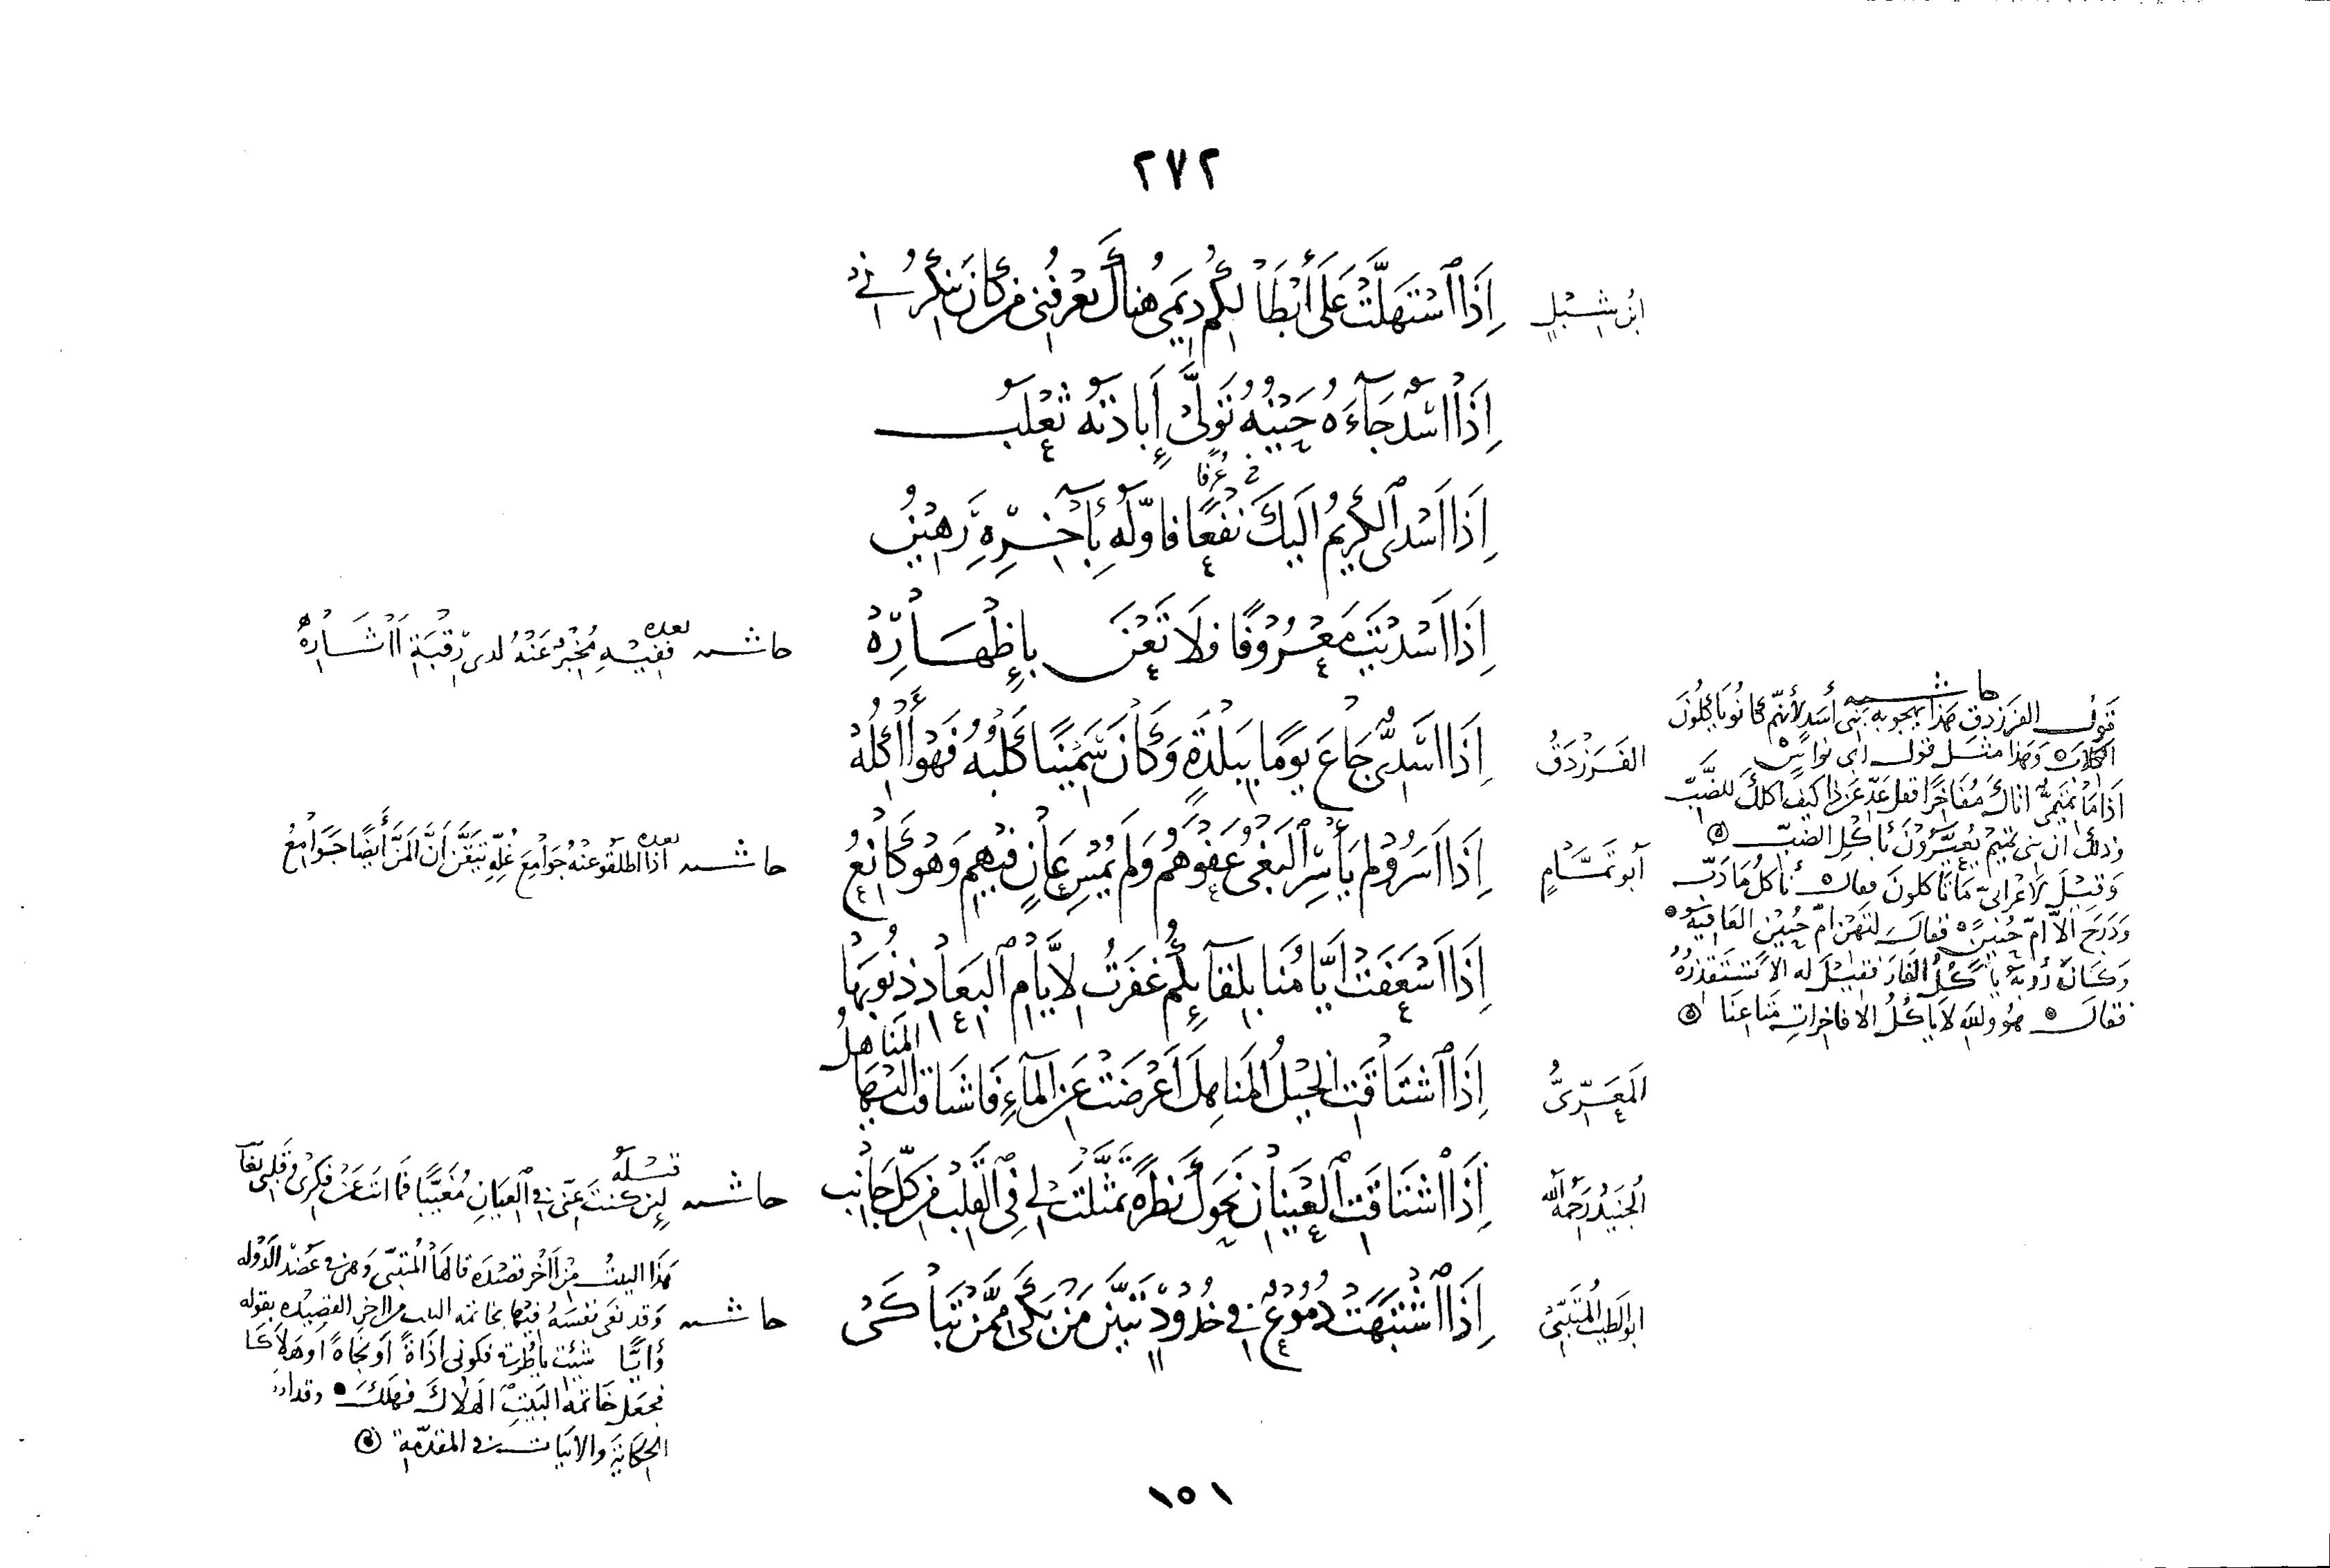 ٢٧٢
ابن شبل
إِذَا اسْتَهَلَّتْ عَلَى أَبْطَالِكُم دِيَمِي هُنَاكَ يَعْرِفُنِي مَن كَانَ يُنْكِرُنِي
إِذَا أَسَدٌ جَاءَهُ حَيْنُهُ تَوَلَّى إِبَادَتَهُ ثَعْلَبُ
خ عُرْفًا
إِذَا أَسْدَى الْكَرِيمُ إِلَيْكَ نَفْعًا فَأَوَّلُهُ بِآخِرِهِ رَهِينُ
إِذَا أَسْدَيْتَ مَعْرُوفًا فَلَا تَعْنَ بِإِظْهَارِهْ
حاشيه بعده
فَفِيهِ مُخْبِرٌ عَنْهُ لدى رقبة آثَارِهْ
الفَرَزْدَقُ
إِذَا أَسَدِيٌّ جَاعَ يَوْمًا بِبَلْدَةٍ وَكَانَ سَمِينًا كَلْبُهُ فَهْوَ آكِلُهْ
حاشيه
قول الفرزدق هذا يهجو به بني أسد لأنهم كانوا يأكلون
الكلاب وهذا مثل قول أبي نواس
إذا ما تميمي أتاك مفاخرا فقل عد عن ذا كيف أكلك للضب
وذلك أن بني تميم يعيرون بأكل الضب
وقيل لأعرابي ما تأكلون فقال نأكل ما دب
ودرج إلا أم حبين فقال لتهن أم حبين العافية
وكان رؤبة يأكل الفار فقيل له ألا تستقذره
فقال هو والله لا يأكل إلا فاخرات متاعنا
أبو تمّام
إِذَا أَسَرُوا لَم يَأْسِرِ الْبَغْيُ عَفْوَهُم وَلَم يُمْسِ عَانٍ فِيهِم وَهْوَ كَانِعُ
حاشيه بعده
إذا أطلقوا عنه جوامع غله تيقن أن المن أيضا جوامع
إِذَا أَسْعَفَتْ أَيَّامُنَا بِلِقَائِكُم غَفَرْتُ لِأَيَّامِ الْبِعَادِ ذُنُوبَهَا
المَعَرِّيُّ
إِذَا اشْتَاقَتِ الْخَيْلُ الْمَنَاهِلَ أَعْرَضَتْ عَنِ الْمَاءِ فَاشْتَاقَتْ إِلَيْهَا
الْمَنَاهِلُ
الجنيد رحمه الله
إِذَا اشْتَاقَتِ الْعَيْنَانِ نَحْوَكَ نَظْرَةً تَمَثَّلْتَ لِي فِي الْقَلْبِ مِن كُلِّ جَانِبِ
حاشيه قبله
لئن كنت عني في العيان مغيبا فما أنت عن فكري وقلبي بغائب
أبو الطيب المتنبي
إِذَا اشْتَبَهَتْ دُمُوعٌ فِي خُدُودٍ تَبَيَّنَ مَنْ بَكَى مِمَّنْ تَبَاكَى
حاشيه
هذا البيت من آخر قصيدة قالها المتنبي وهي في عضد الدولة
وقد نعى نفسه فيها بخاتمة البيت من آخر القصيده بقوله
وأيًّا شئت يا طرقي فكوني أذاة أو نجاة أو هلاكا
فجعل خاتمة البيت الهلاك فهلك وقد
الحكاية والأبيات في المقدمة
١٥١